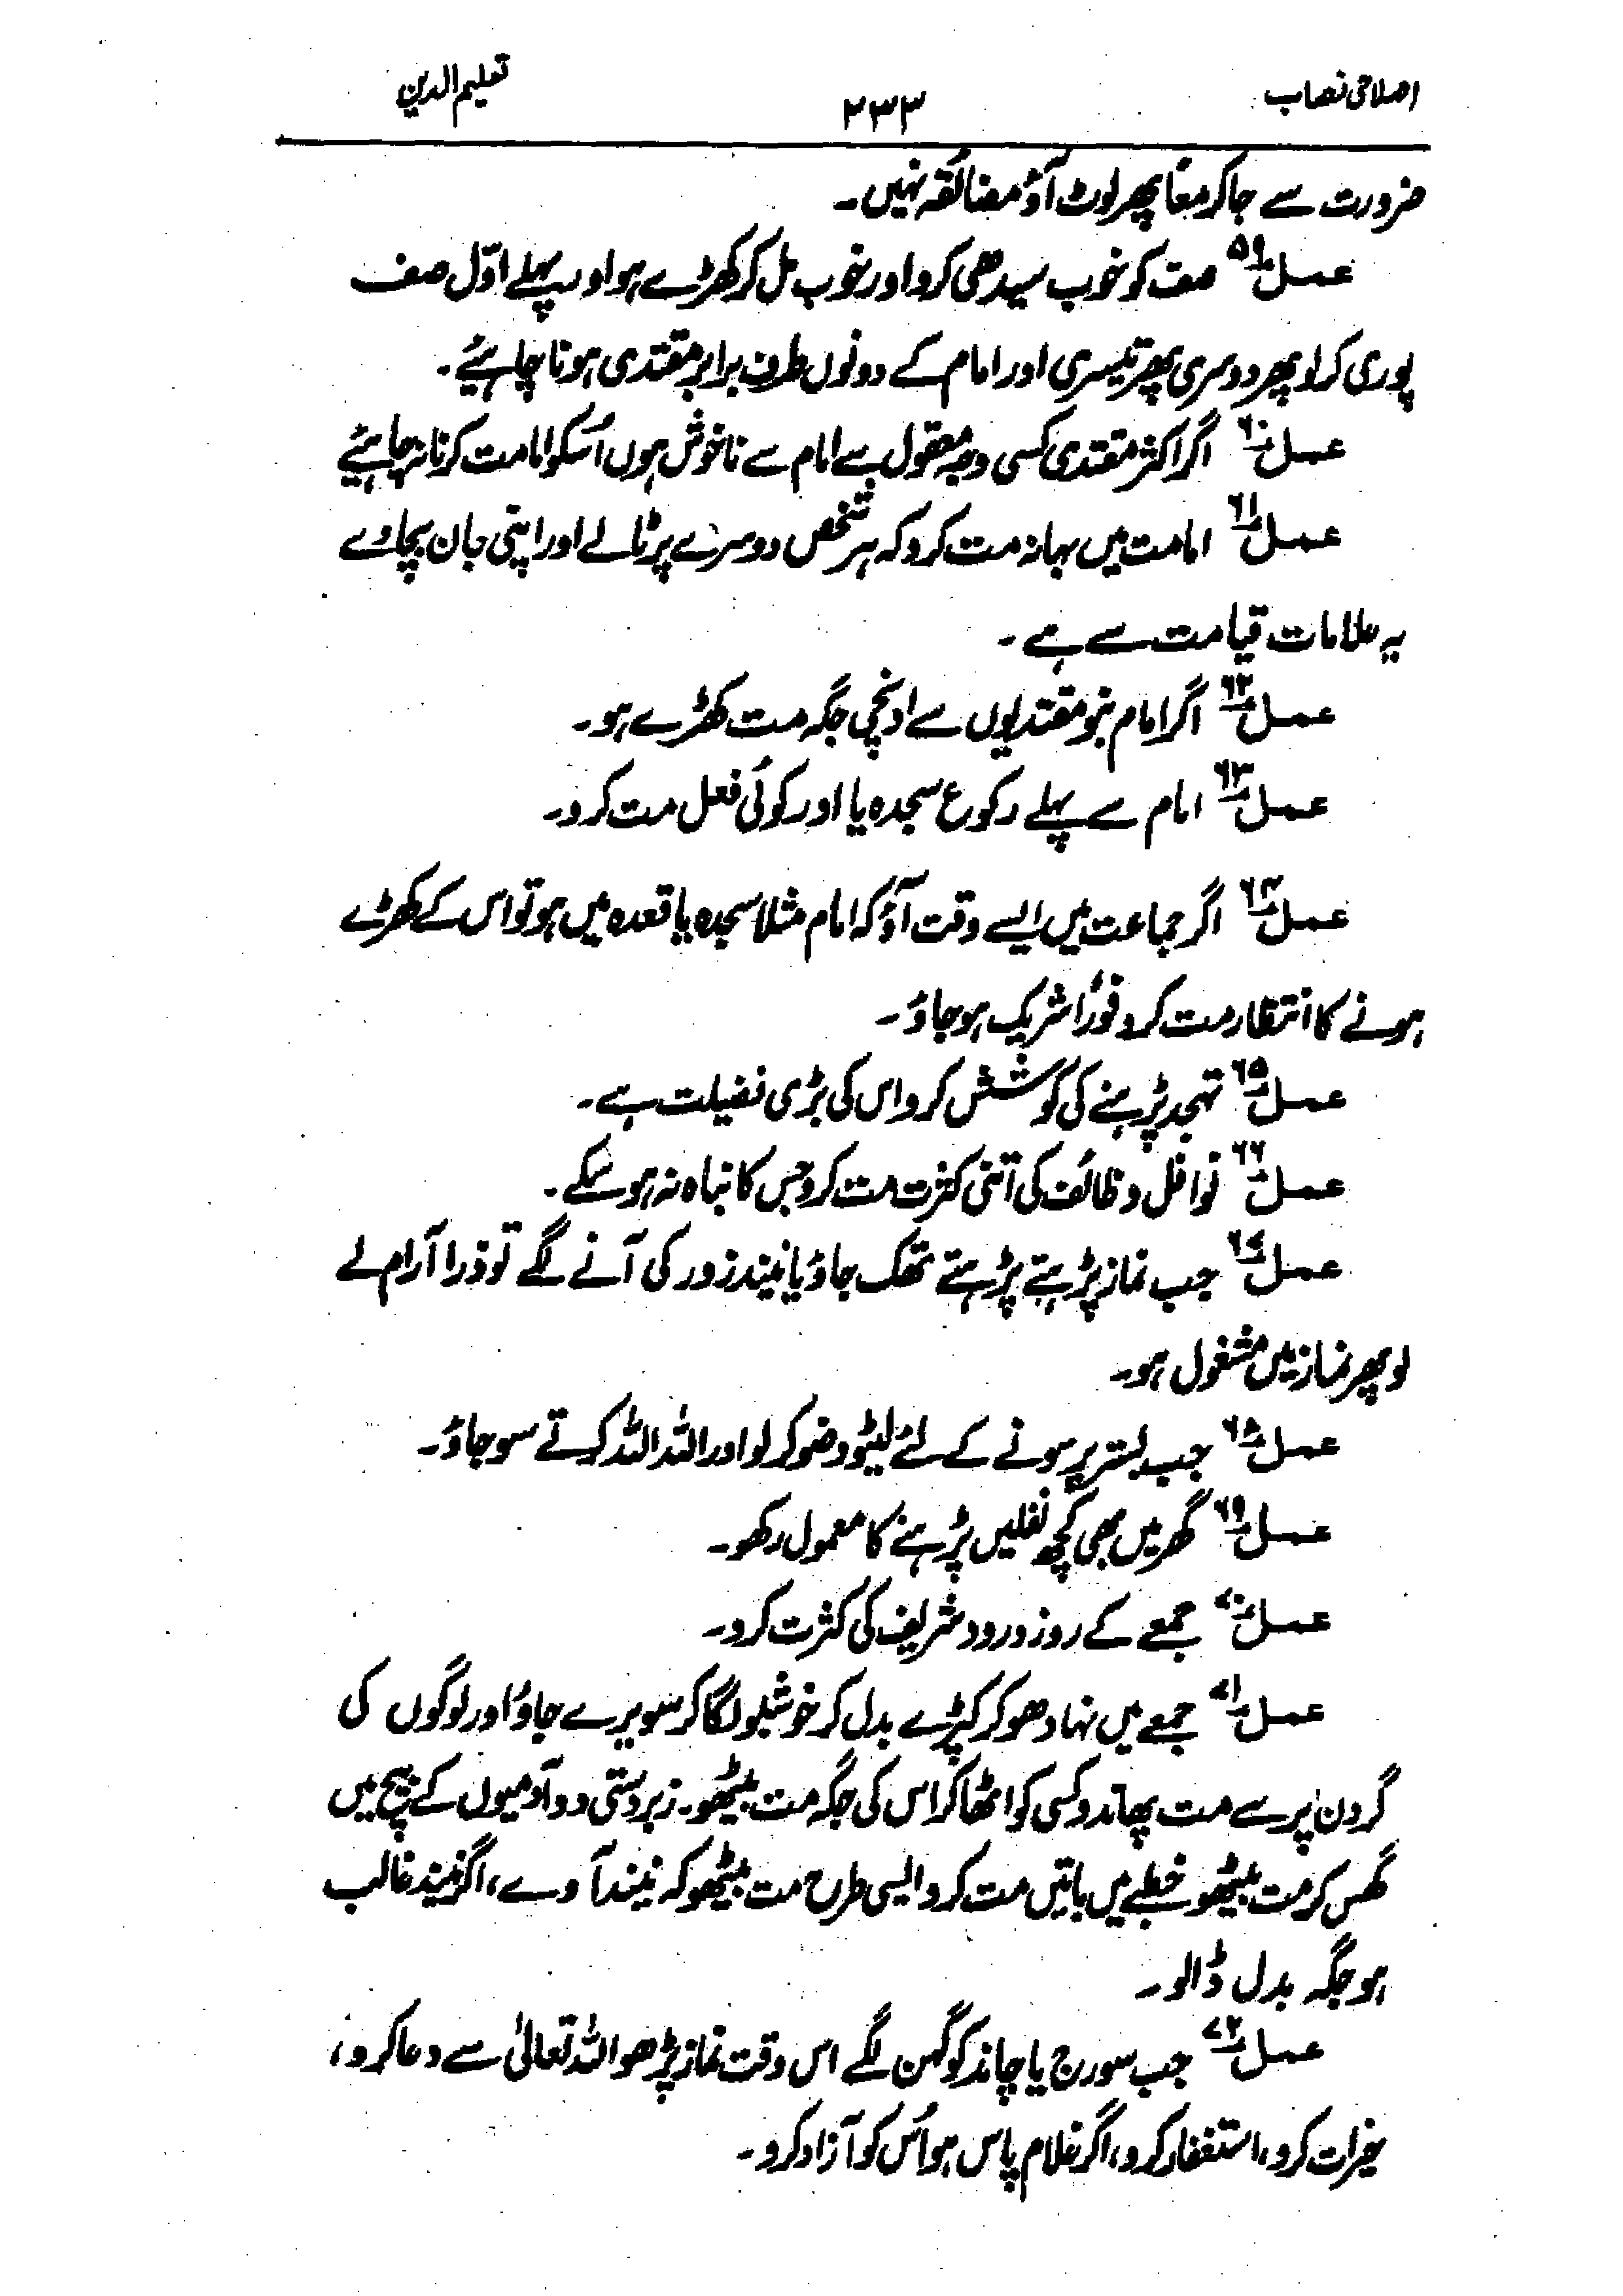 اصلاحی نصاب
۲۳۳
تعلیم الدین
ضرورت سے جا کر معاً پھر لوٹ آؤ مضائقہ نہیں۔
عمل ۵۹ صف کو خوب سیدھی کرو اور خوب مل کر کھڑے ہو اور پہلے اوّل صف
پوری کر لو پھر دوسری پھر تیسری اور امام کے دونوں طرف برابر مقتدی ہونا چاہیئے۔
عمل ۶۰ اگر اکثر مقتدی کسی وجہ معقول سے امام سے ناخوش ہوں اُسکو امامت کرنا نہ چاہیئے
عمل ۶۱ امامت میں بہانہ مت کرو کہ ہر شخص دوسرے پر ٹالے اور اپنی جان بچاوے
یہ علامات قیامت سے ہے۔
عمل ۶۲ اگر امام بنو مقتدیوں سے اونچی جگہ مت کھڑے ہو۔
عمل ۶۳ امام سے پہلے رکوع سجدہ یا اور کوئی فعل مت کرو۔
عمل ۶۴ اگر جماعت میں ایسے وقت آؤ کہ امام مثلا سجدہ یا قعدہ میں ہو تو اس کے کھڑے
ہونے کا انتظار مت کرو فوراً شریک ہو جاؤ۔
عمل ۶۵ تہجد پڑہنے کی کوشش کرو اس کی بڑی فضیلت ہے۔
عمل ۶۶ نوافل و ظائف کی اتنی کثرت مت کرو جس کا نباہ نہ ہو سکے۔
عمل ۶۷ جب نماز پڑہتے پڑہتے تھک جاؤ یا نیند زور کی آنے لگے تو ذرا آرام لے
لو پھر نماز میں مشغول ہو۔
عمل ۶۸ جب بستر پر سونے کے لئے لیٹو وضو کر لو اور اللہ اللہ کرتے سو جاؤ۔
عمل ۶۹ گھر میں بھی کچھ نفلیں پڑہنے کا معمول رکھو۔
عمل ۷۰ جمعے کے روز درود شریف کی کثرت کرو۔
عمل ۷۱ جمعے میں نہا دھو کر کپڑے بدل کر خوشبو لگا کر سویرے جاؤ اور لوگوں کی
گردن پر سے مت پھاندو کسی کو اٹھا کر اس کی جگہ مت بیٹھو۔ زبردستی دو آدمیوں کے بیچ میں
گھس کر مت بیٹھو خطبے میں باتیں مت کرو ایسی طرح مت بیٹھو کہ نیند آوے، اگر نیند غالب
ہو جگہ بدل ڈالو۔
عمل ۷۲ جب سورج یا چاند کو گہن لگے اس وقت نماز پڑھو اللہ تعالیٰ سے دعا کرو،
خیرات کرو، استغفار کرو، اگر غلام پاس ہو اُس کو آزاد کرو۔